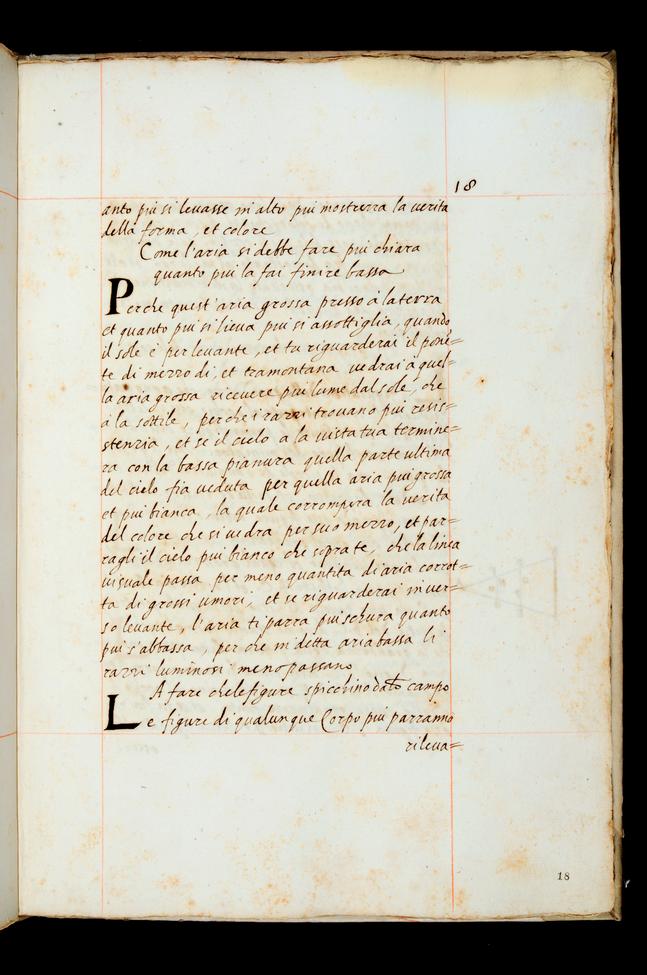 18
anto più si levasse in alto piu mostrerra la verita
della forma, et colore
Come l'aria si debbe fare piu chiara
quanto piu la fai finire bassa
Perche quest'aria grossa presso à la terra
et quanto piu si lieva piu si assottiglia, quando
il sole è per levante, et tu riguarderai il pone=
te di mezzo di, et tramontana vedrai à quel=
la aria grossa ricevere piu lume dal sole, che
à la sottile, perche i razzi trovano piu resis=
stenzia, et se il cielo a la vista tua termine=
ra con la bassa pianura quella parte ultima
del cielo fia veduta per quella aria piu grossa
et piu bianca, la quale corrompera la verita
del colore che si vedra per suo mezzo, et par=
ragli il cielo piu bianco che sopra te, che la linea
visuale passa per meno quantita di aria corrot=
ta di grossi umori, et se riguarderai in ver=
so levante, l'aria ti parra piu schura quanto
piu s'abbassa, per che in detta aria bassa li
razzi luminosi meno passano
A fare che le figure spicchino da loro campo
Le figure di qualunque Corpo piu parranno
rileva=
18